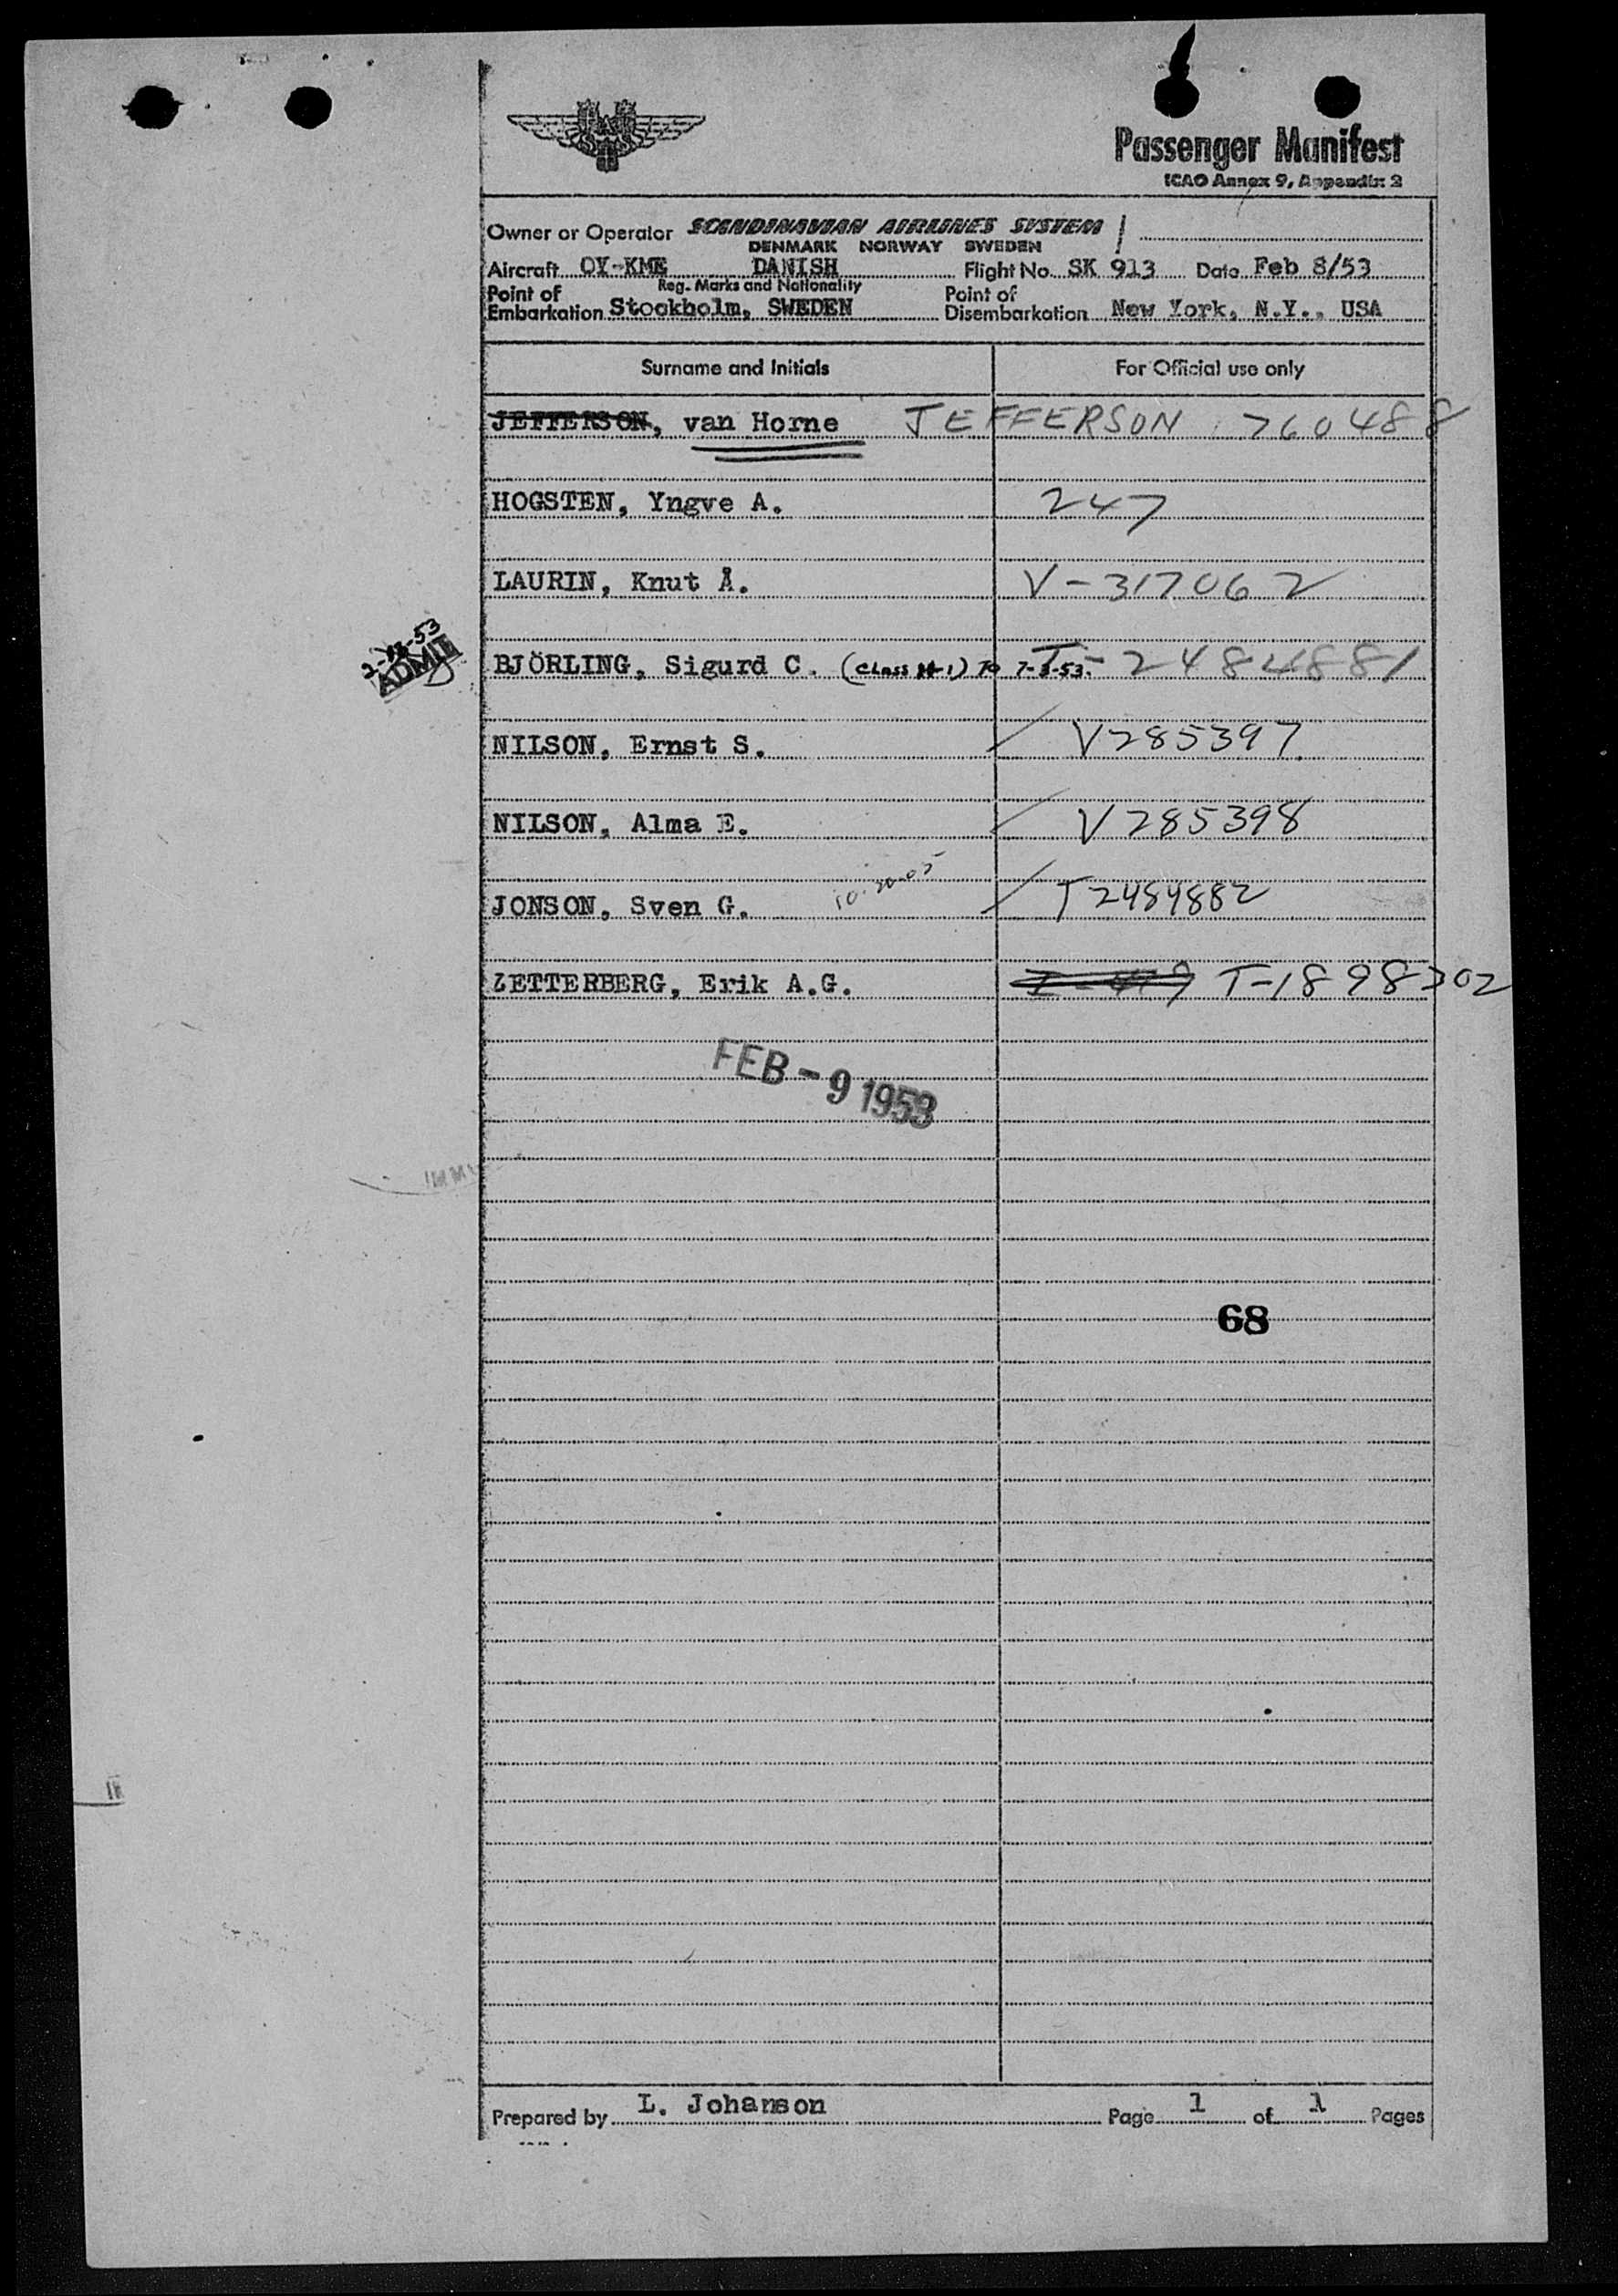 Passenger Manifest
ICAO Annex 9, Appendix 2
Owner or Operator SCANDINAVIAN AIRLINES SYSTEM
DENMARK NORWAY SWEDEN
Aircraft OY-KME DANISH Flight No. SK 913 Date Feb 8/53
Reg. Marks and Nationality
Point of Embarkation Stockholm, SWEDEN Point of Disembarkation New York, N.Y., USA
Surname and Initials For Official use only
JEFFERSON, van Horne JEFFERSON 760488
HOGSTEN, Yngve A. 247
LAURIN, Knut Å. V-317062
ADMIT
BJÖRLING, Sigurd C. (Class H-1) To 7-3-53. T-2484881
NILSON, Ernst S. V285397
NILSON, Alma E. V285398
10-20-05
JONSON, Sven G. T2484882
ZETTERBERG, Erik A.G. T-1898302
FEB-9 1953
68
Prepared by L. Johanson Page 1 of 1 Pages